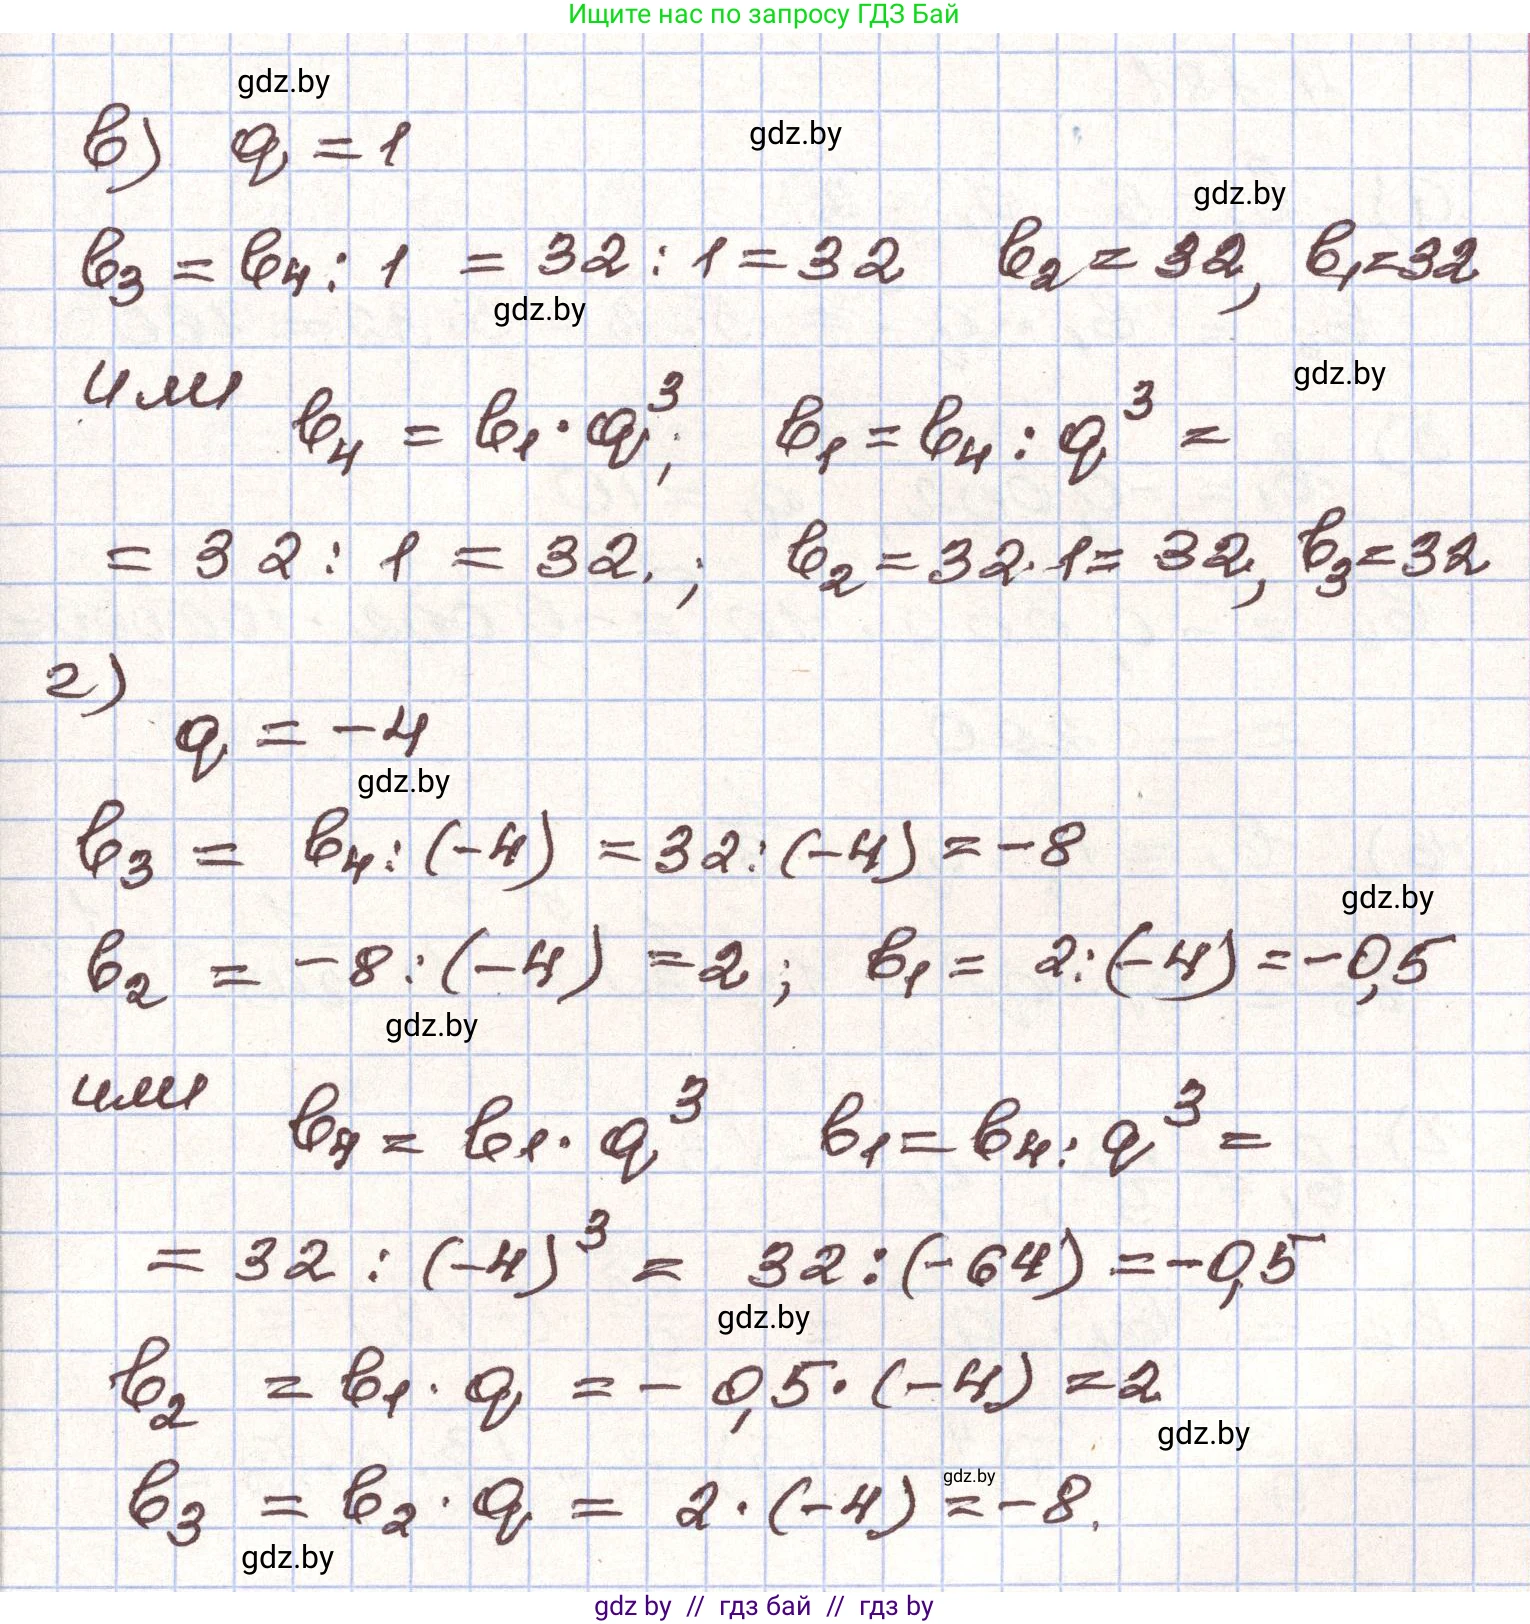 Ищите нас по запросу ГДЗ Бай
gdz.by
в) q = 1
gdz.by
gdz.by
b₃ = b₄ : 1 = 32 : 1 = 32 b₂ = 32, b₁ = 32
gdz.by
gdz.by
или b₄ = b₁ · q³; b₁ = b₄ : q³ =
= 32 : 1 = 32. ; b₂ = 32 · 1 = 32, b₃ = 32
г)
q = -4
gdz.by
b₃ = b₄ : (-4) = 32 : (-4) = -8
gdz.by
b₂ = -8 : (-4) = 2 ; b₁ = 2 : (-4) = -0,5
gdz.by
или b₄ = b₁ · q³ b₁ = b₄ : q³ =
= 32 : (-4)³ = 32 : (-64) = -0,5
gdz.by
b₂ = b₁ · q = -0,5 · (-4) = 2
gdz.by
gdz.by
b₃ = b₂ · q = 2 · (-4) = -8.
gdz.by
gdz by // гдз бай // гдз by